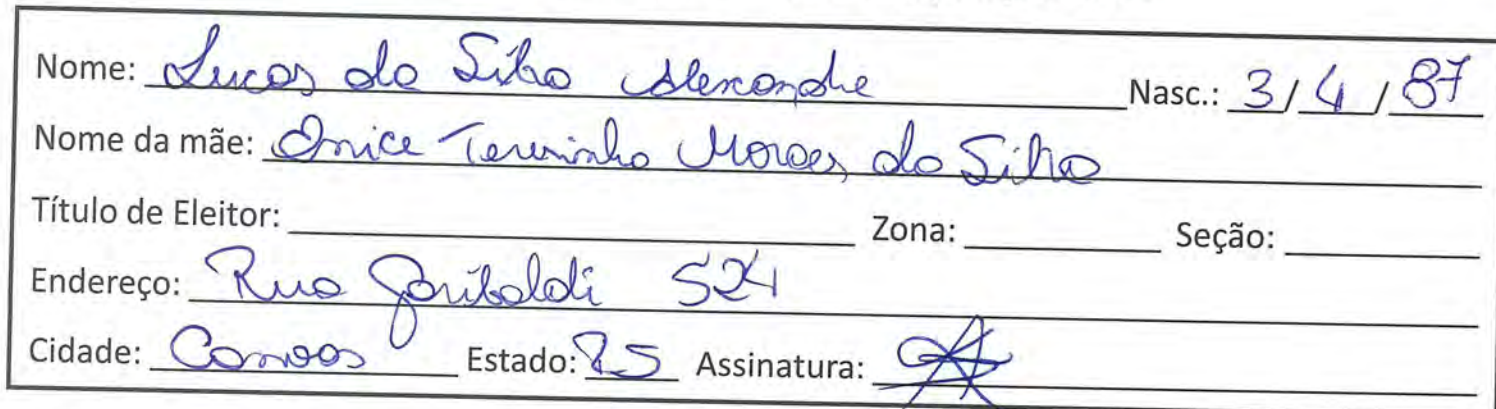 Nome: Lucas da Silva Alexandre Nasc.: 3/4/87
Nome da mãe: Onice Terezinha Moraes da Silva
Título de Eleitor: Zona: Seção:
Endereço: Rua Garibaldi 524
Cidade: Canoas Estado: RS Assinatura: